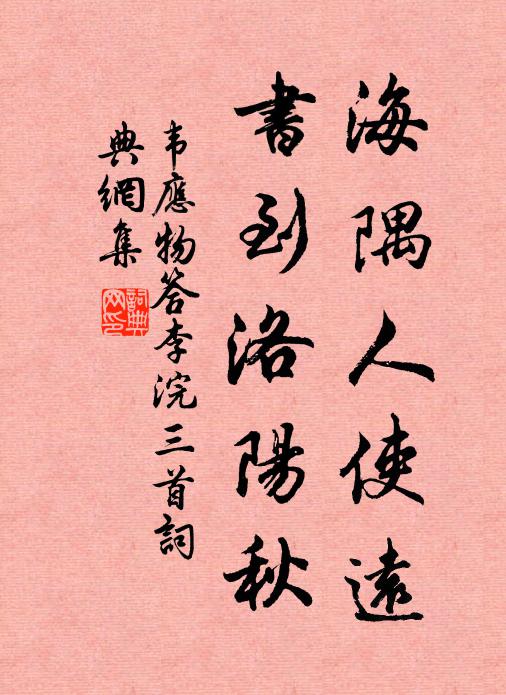 海隅人使遠
書到洛陽秋
韦應物答李浣三首詞
典網集
詞典网印